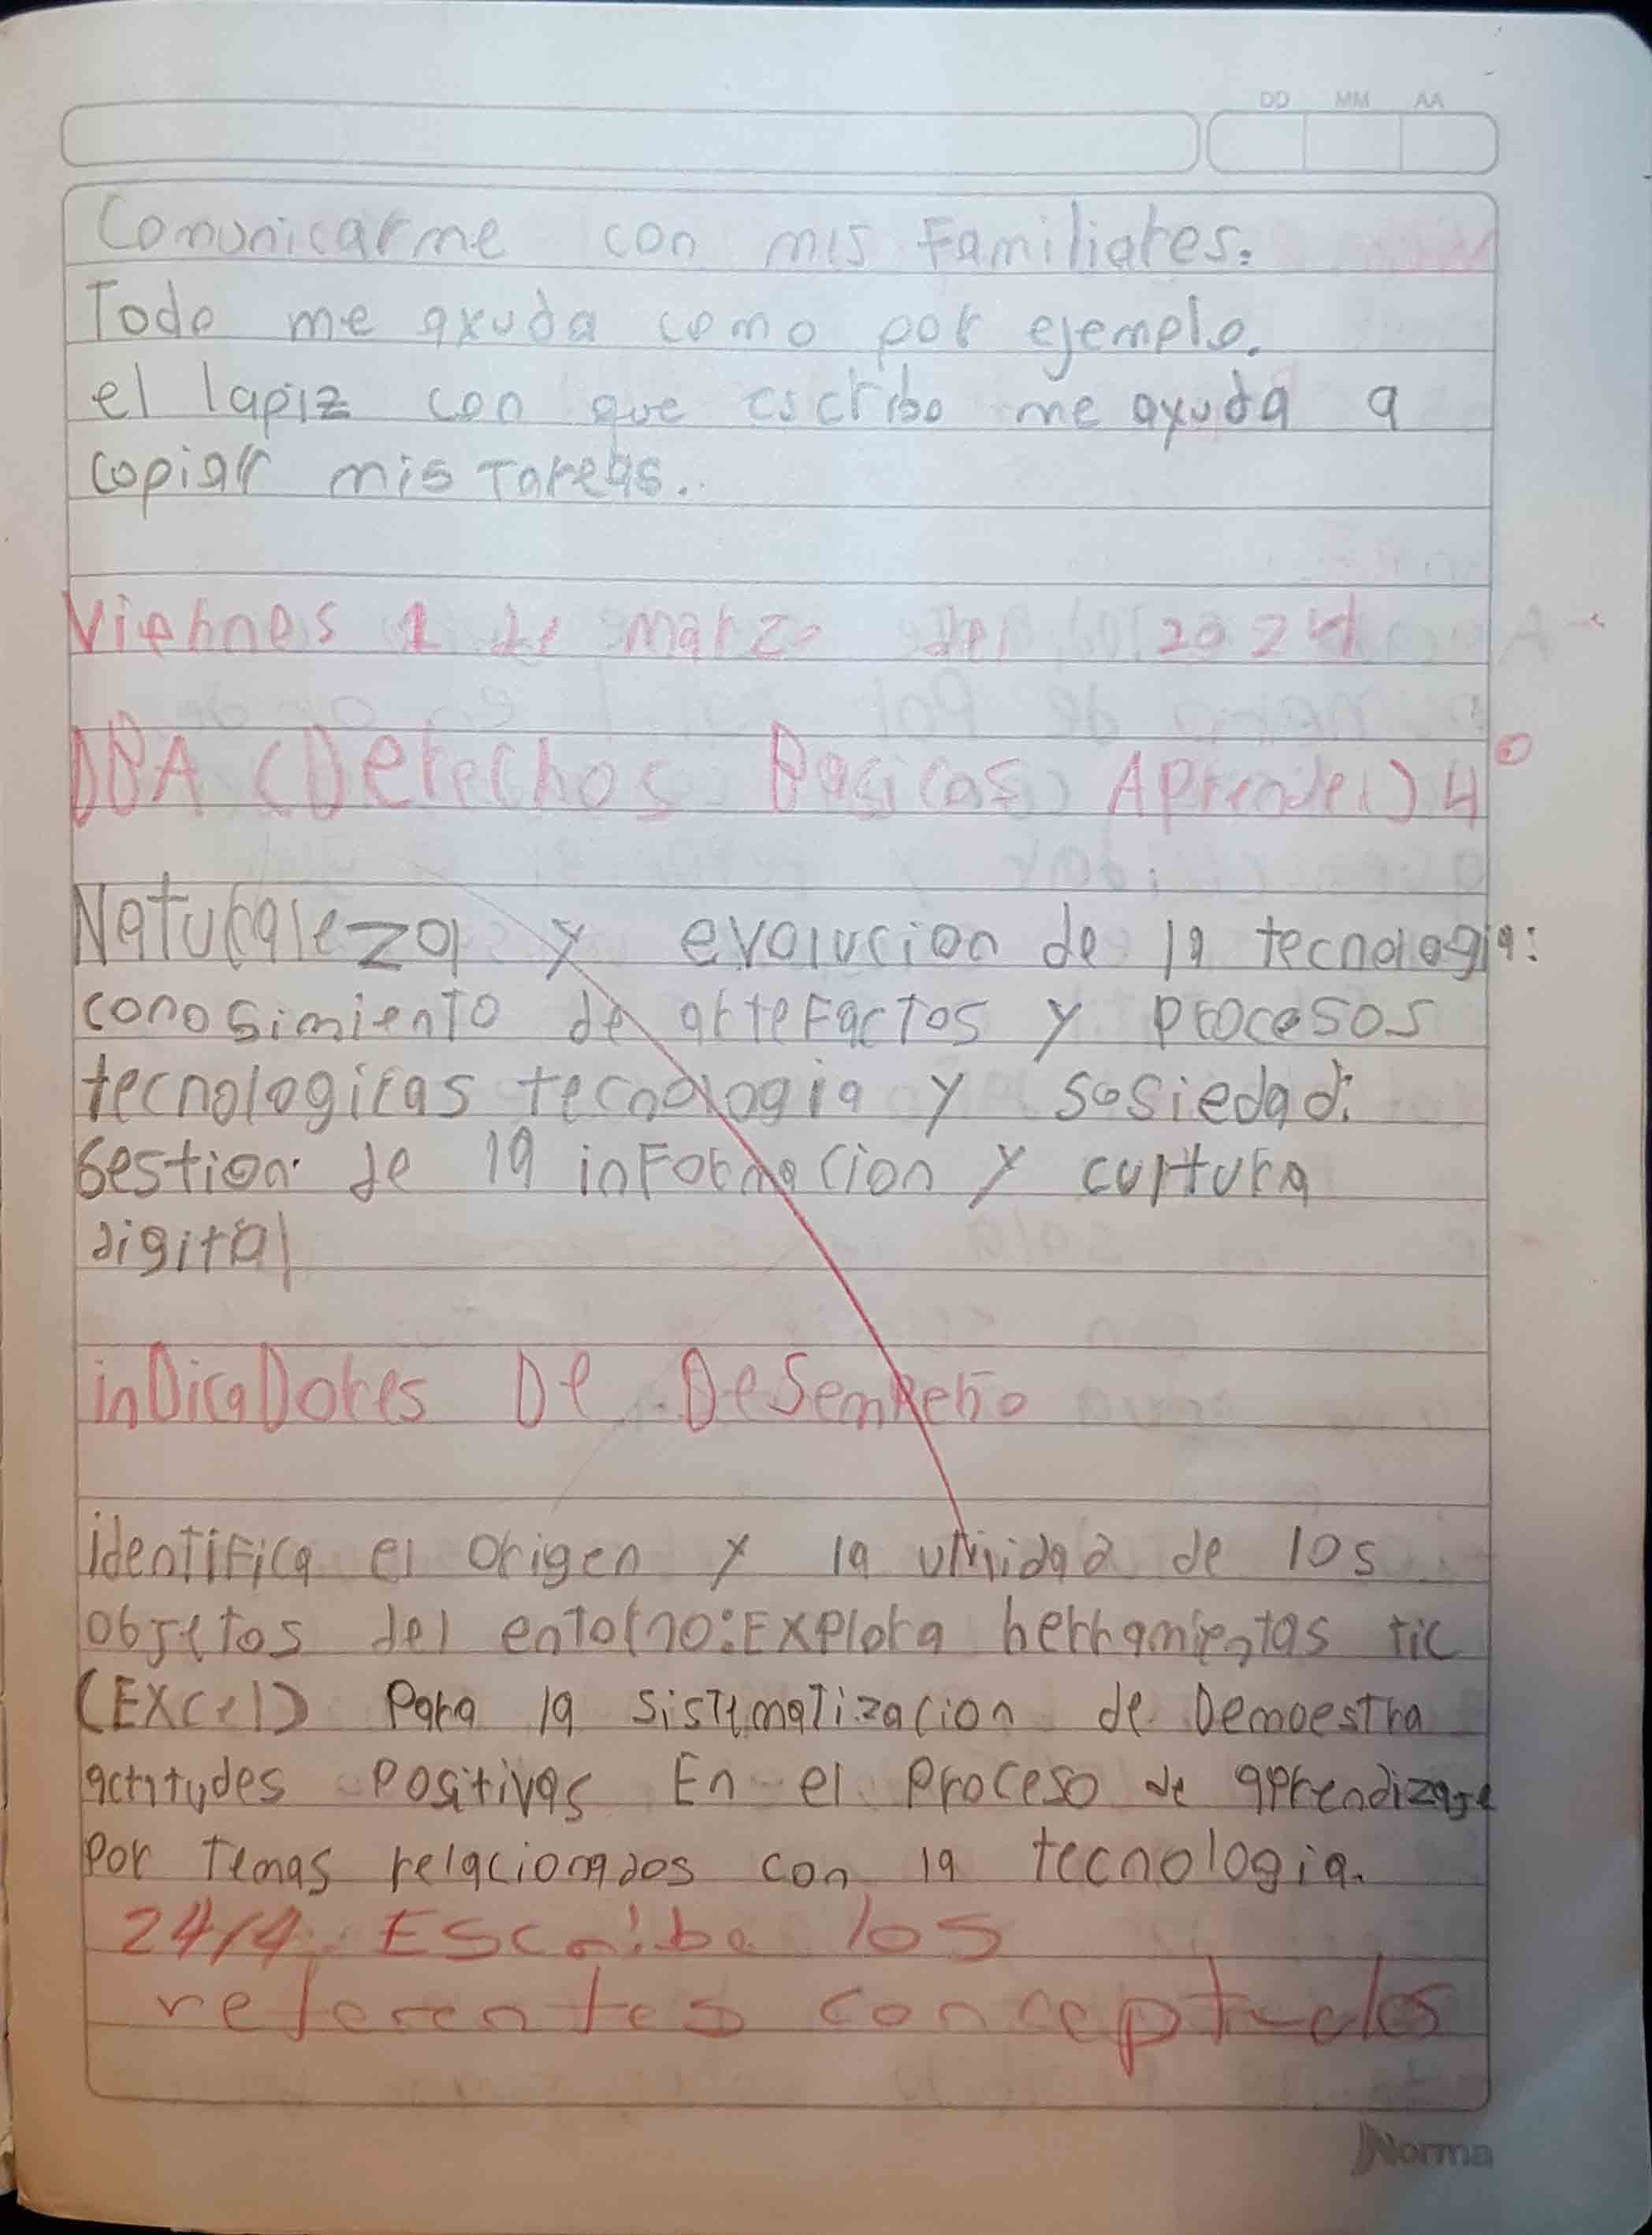 DD MM AA
Comunicarme con mis Familiares.
Todo me axuda como por ejemplo.
el lapiz con que escribo me axuda a
copiar mis Tareas.
Viernes 1 de marzo del 2024
DBA (Derechos Basicos Aprender) 4°
Naturaleza y evolucion de la tecnologia:
conosimiento de artefactos y procesos
tecnologicas tecnologia y sosiedad:
Gestion de la informacion y curtura
digital
inDicaDores De Desempeño
identifica el origen y la utilidad de los
objetos del entorno:Explora herramientas tic
(Excel) Para la sistematizacion de Demoestra
actitudes Positivas En el Proceso de aprendizaje
por Temas relacionados con la tecnologia.
24/4 Escribe los
referentes conceptuales
Norma